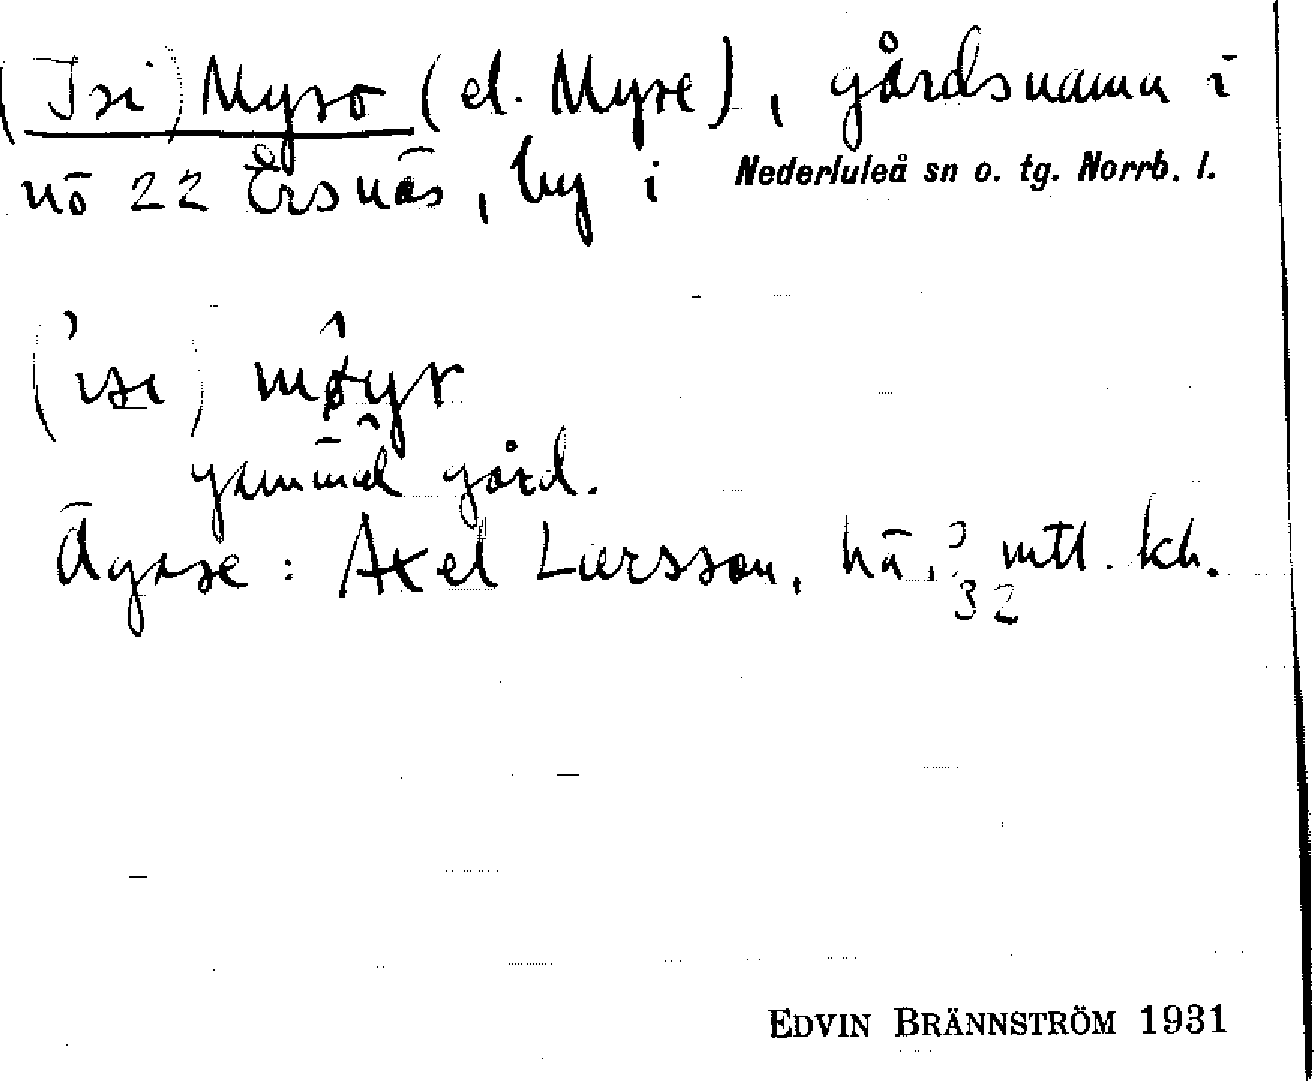 (Isi) Myro (el. Myre), gårdsnamn i
nö 22 Ersnäs, by i Nederluleå sn o. tg. Norrb. l.
gammal gård.
Ägare: Axel Larsson, 32 mtl. kh.
EDVIN BRÄNNSTRÖM 1931